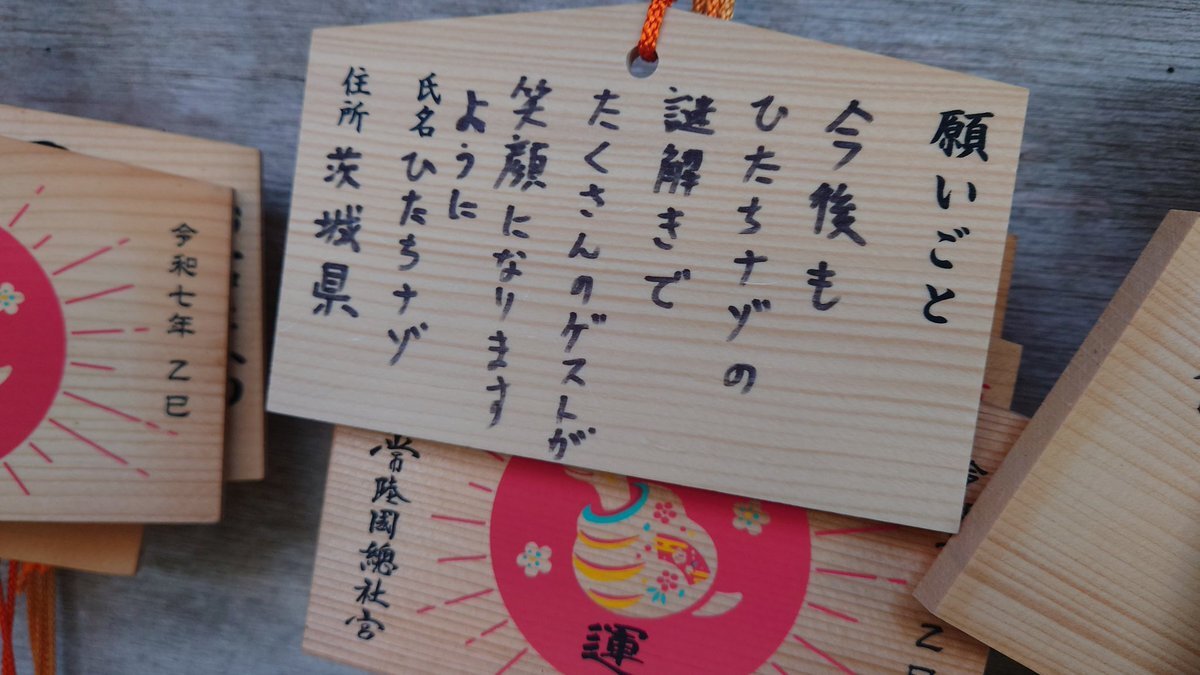 願いごと
今後も
ひたちナゾの
謎解きで
たくさんのゲストが
笑顔になります
ように
氏名 ひたちナゾ
住所 茨城県
令和七年 乙巳
常陸國總社宮
運
乙巳